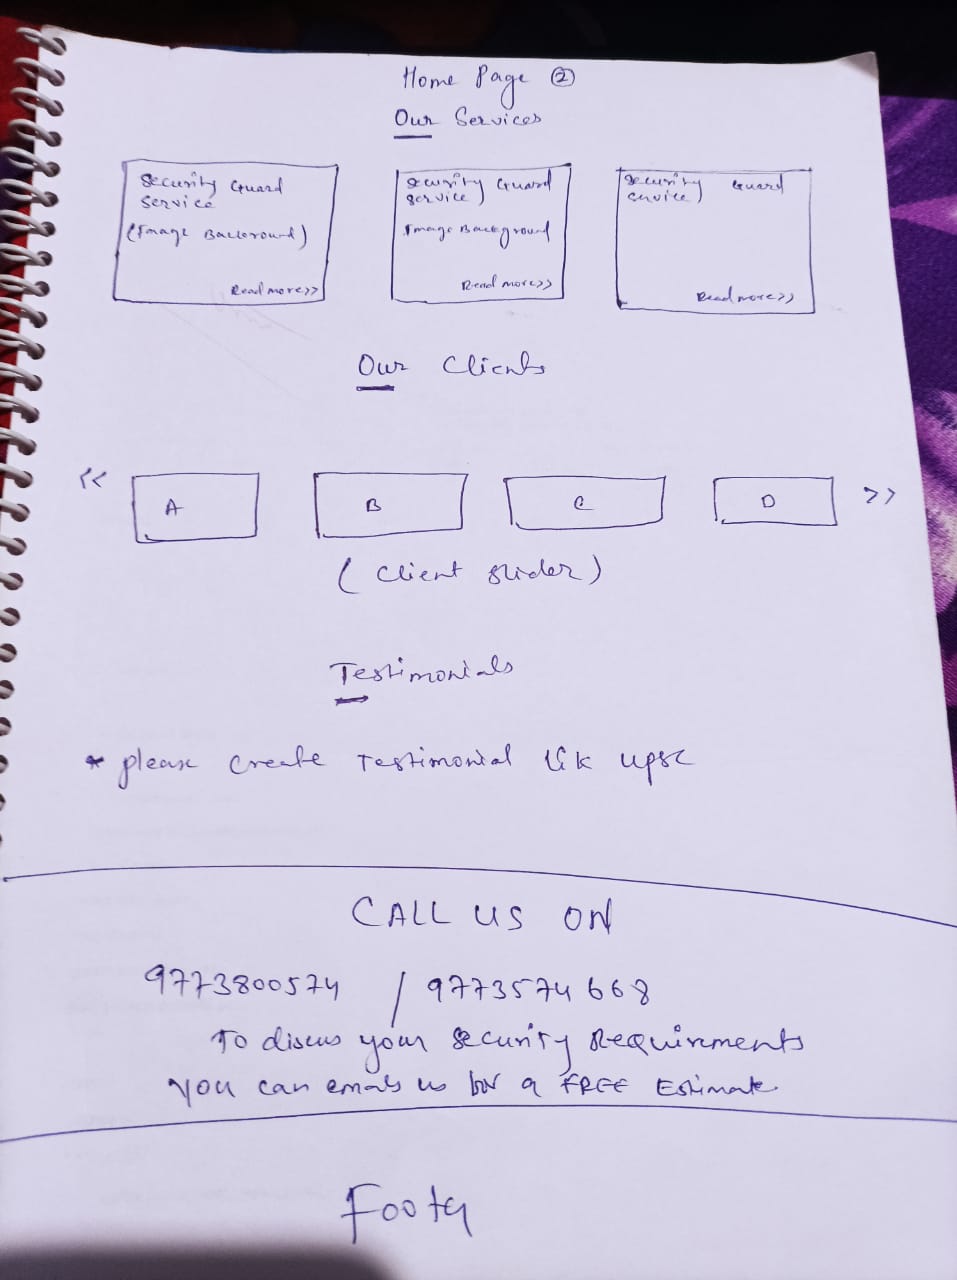 Home Page ②
Our Services
Security Guard
Service
(Image Background)
Read more>>
Security Guard
Service)
Image Background
Read more>>
Security Guard
Service)
Read more>>
Our Clients
<< A B C D >>
(Client slider)
Testimonials
* please create Testimonial lik upsc
CALL US ON
9773800574 / 9773574668
To discus your Security Requirements
You can email us for a FREE Estimate
Footer